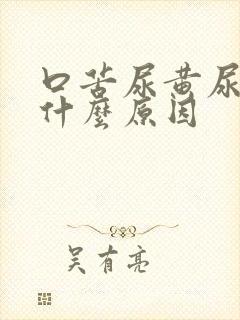 口苦尿黄尿
什麼原因
吴有亮